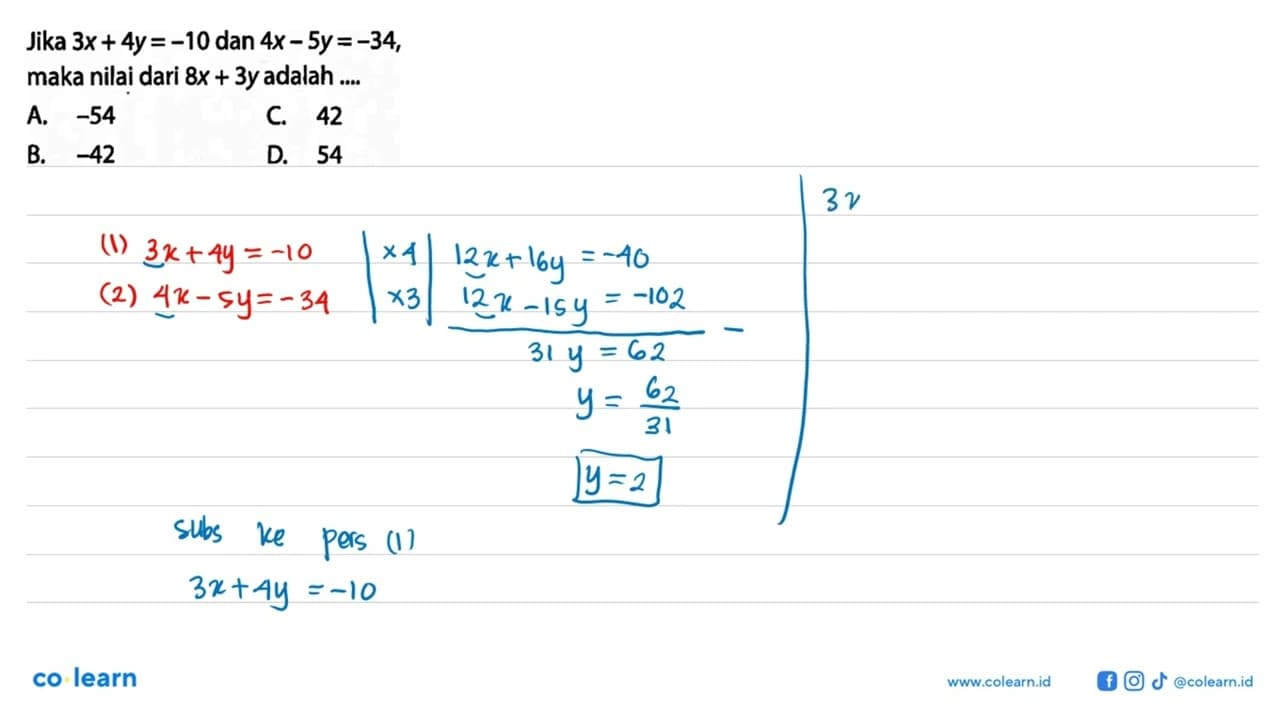 Jika 3x + 4y = –10 dan 4x – 5y = –34,
maka nilai dari 8x + 3y adalah ....
A. –54 C. 42
B. –42 D. 54
3x
(1) 3x + 4y = -10 | ×4 | 12x + 16y = -40
(2) 4x - 5y = -34 | ×3 | 12x - 15y = -102
−
31 y = 62
y = 62/31
y = 2
subs ke pers (1)
3x + 4y = -10
co learn
www.colearn.id @colearn.id